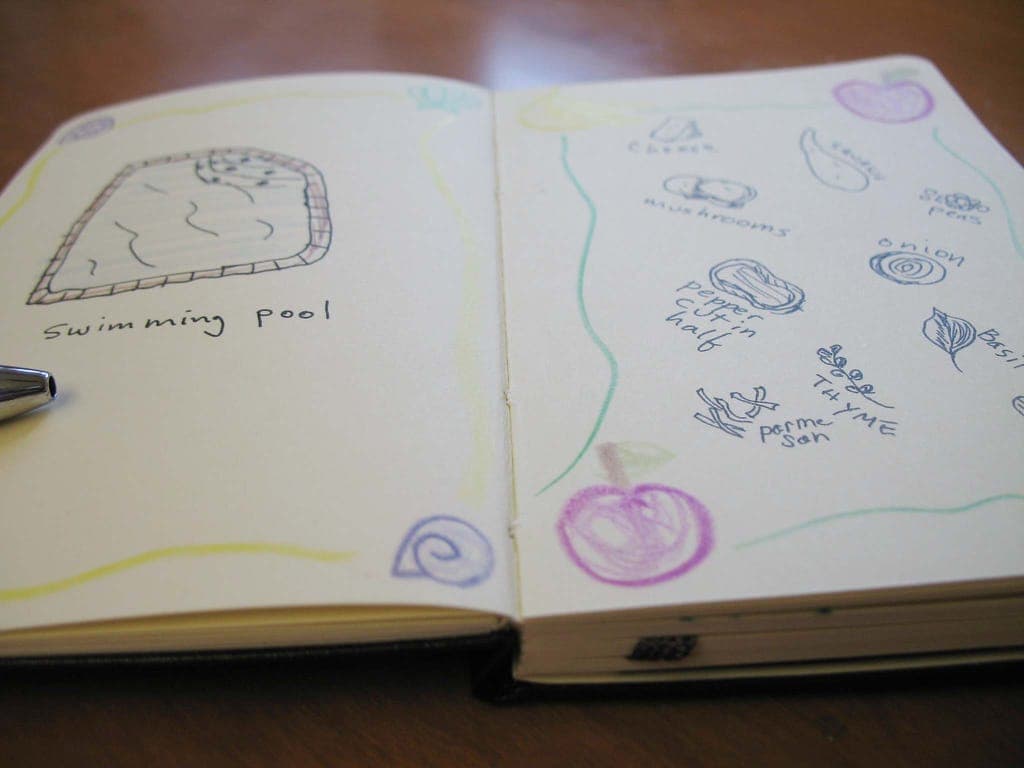 swimming pool
Cheese
squash
mushrooms
peas
onion
pepper
cut in
half
Basil
THYME
parme
san